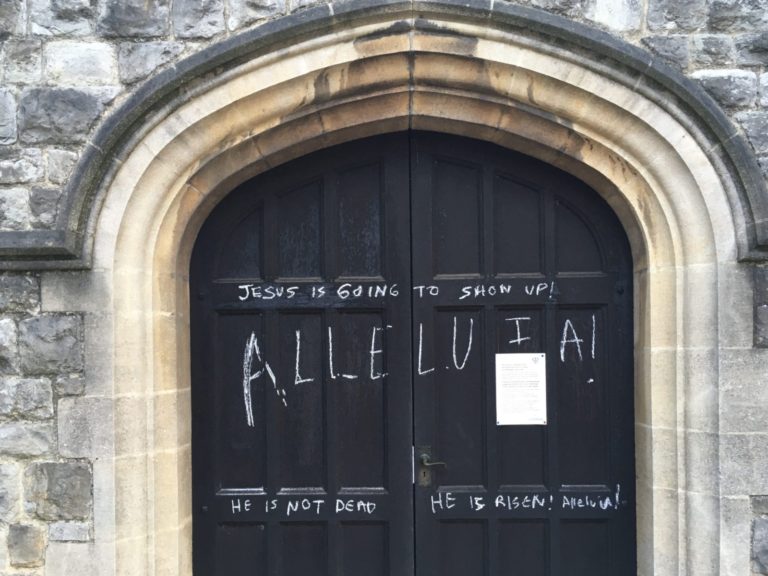 JESUS IS GOING TO SHOW UP!
ALLELUIA!
HE IS NOT DEAD HE IS RISEN! Alleluia!